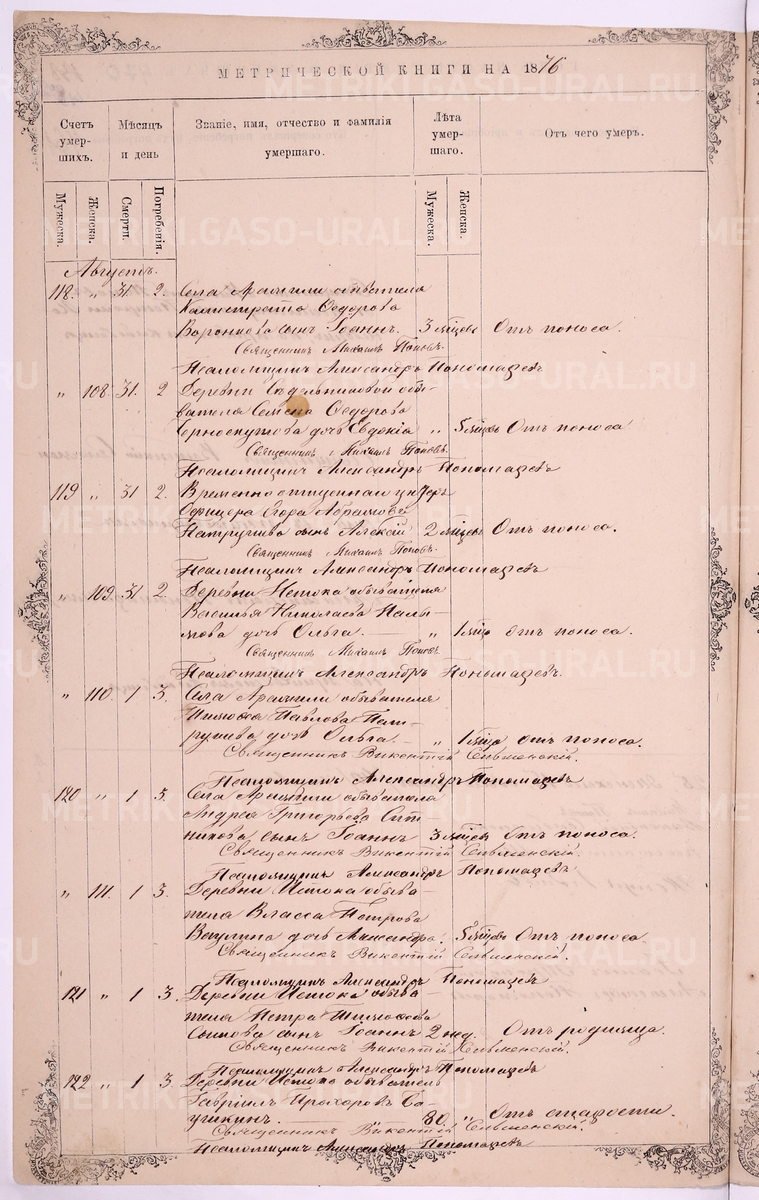 МЕТРИЧЕСКОЙ КНИГИ НА 1876
Счетъ умер-шихъ.
Мѣсяцъ и день
Званіе, имя, отчество и фамилія умершаго.
Лѣта умер-шаго.
Отъ чего умеръ.
Мужеска. Женска. Смерти. Погребенія. Мужеска. Женска.
Августъ.
118. „ 31. 2. Села Арамили обывателя
Калистрата Ѳедорова
Воронкова сынъ Іоаннъ. 3 мѣсцевъ Отъ поноса.
Священникъ Михаилъ Поповъ.
Псаломщикъ Александръ Пономаревъ
„ 108. 31. 2 Деревни Седельниковой обы-
вателя Семена Ѳедорова
Черноскутова дочь Евдокія „ 5 мѣсцевъ Отъ поноса
Священникъ Михаилъ Поповъ.
Псаломщикъ Александръ Пономаревъ
119 „ 31 2. Временно отпускнаго унтеръ
Офицера Егора Абрамова
Патрушева сынъ Алексій 2 мѣсцевъ Отъ поноса.
Священникъ Михаилъ Поповъ.
Псаломщикъ Александръ Пономаревъ
„ 109. 31 2 Деревни Истока обывателя
Василья Николаева
дочь Ольга. „ 1 мѣсца отъ поноса.
Священникъ Михаилъ Поповъ.
Псаломщикъ Александръ Пономаревъ.
„ 110. 1 3. Села Арамили обывателя
Павлова Пат-
рушева дочь Ольга. „ 1 мѣсца отъ поноса.
Священникъ Викентій
Псаломщикъ Александръ Пономаревъ
120 „ 1 3. Села Арамили обывателя
Андрея Григорьева Сит-
никова сынъ Іоаннъ 3 мѣсцевъ отъ поноса.
Священникъ Викентій
Псаломщикъ Александръ Пономаревъ
„ 111. 1 3. Деревни Истока обыва-
теля Власса Петрова
Ваулина дочь Александра. 5 мѣсцевъ Отъ поноса
Священникъ Викентій
Псаломщикъ Александръ Пономаревъ
121 „ 1 3. Деревни Истока обыва-
теля Петра
сынъ Іоаннъ 2 нед. Отъ родимца.
Священникъ Викентій
Псаломщикъ Александръ Пономаревъ
122 „ 1 3. Деревни Истока обыватель
Гавріилъ Прохоровъ
80. „ Отъ старости.
Священникъ Викентій
Псаломщикъ Александръ Пономаревъ
METRIKI.GASO-URAL.RU